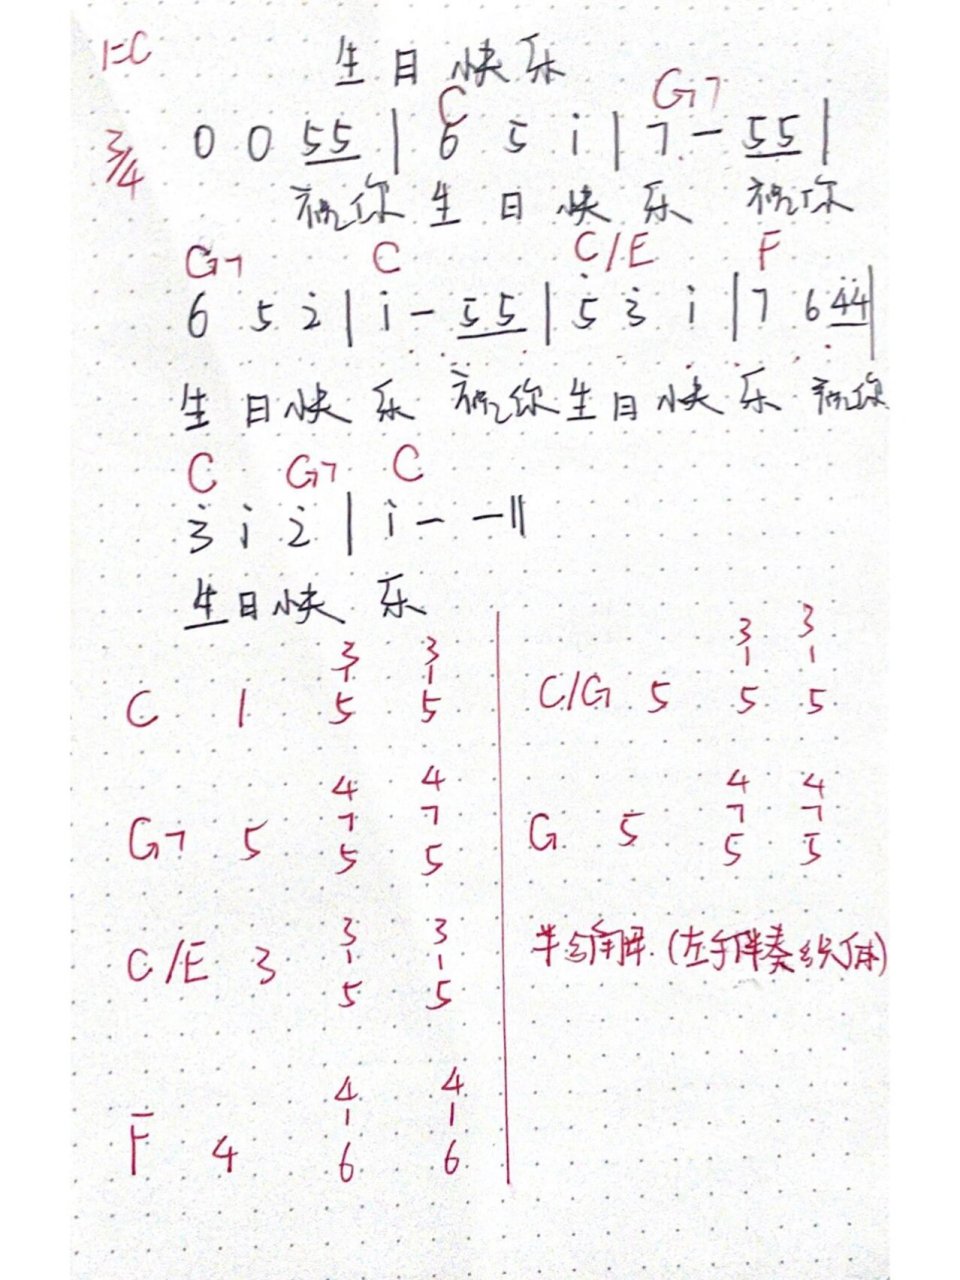 1=C 生日快乐
C G7
3/4 0 0 55 | 6 5 i | 7 - 55 |
祝你 生 日 快 乐 祝你
G7 C C/E F
6 5 2̇ | i - 55 | 5̇ 3̇ i | 7 6 4̇4̇ |
生 日 快 乐 祝你 生 日 快 乐 祝你
C G7 C
3̇ i 2̇ | i - - ‖
生日快 乐
3 3
1 1
C 1 5 5
4 4
7 7
G7 5 5 5
3 3
1 1
C/E 3 5 5
4 4
1 1
F 4 6 6
3 3
1 1
C/G 5 5 5
4 4
7 7
G 5 5 5
半分解 (左手伴奏织体)